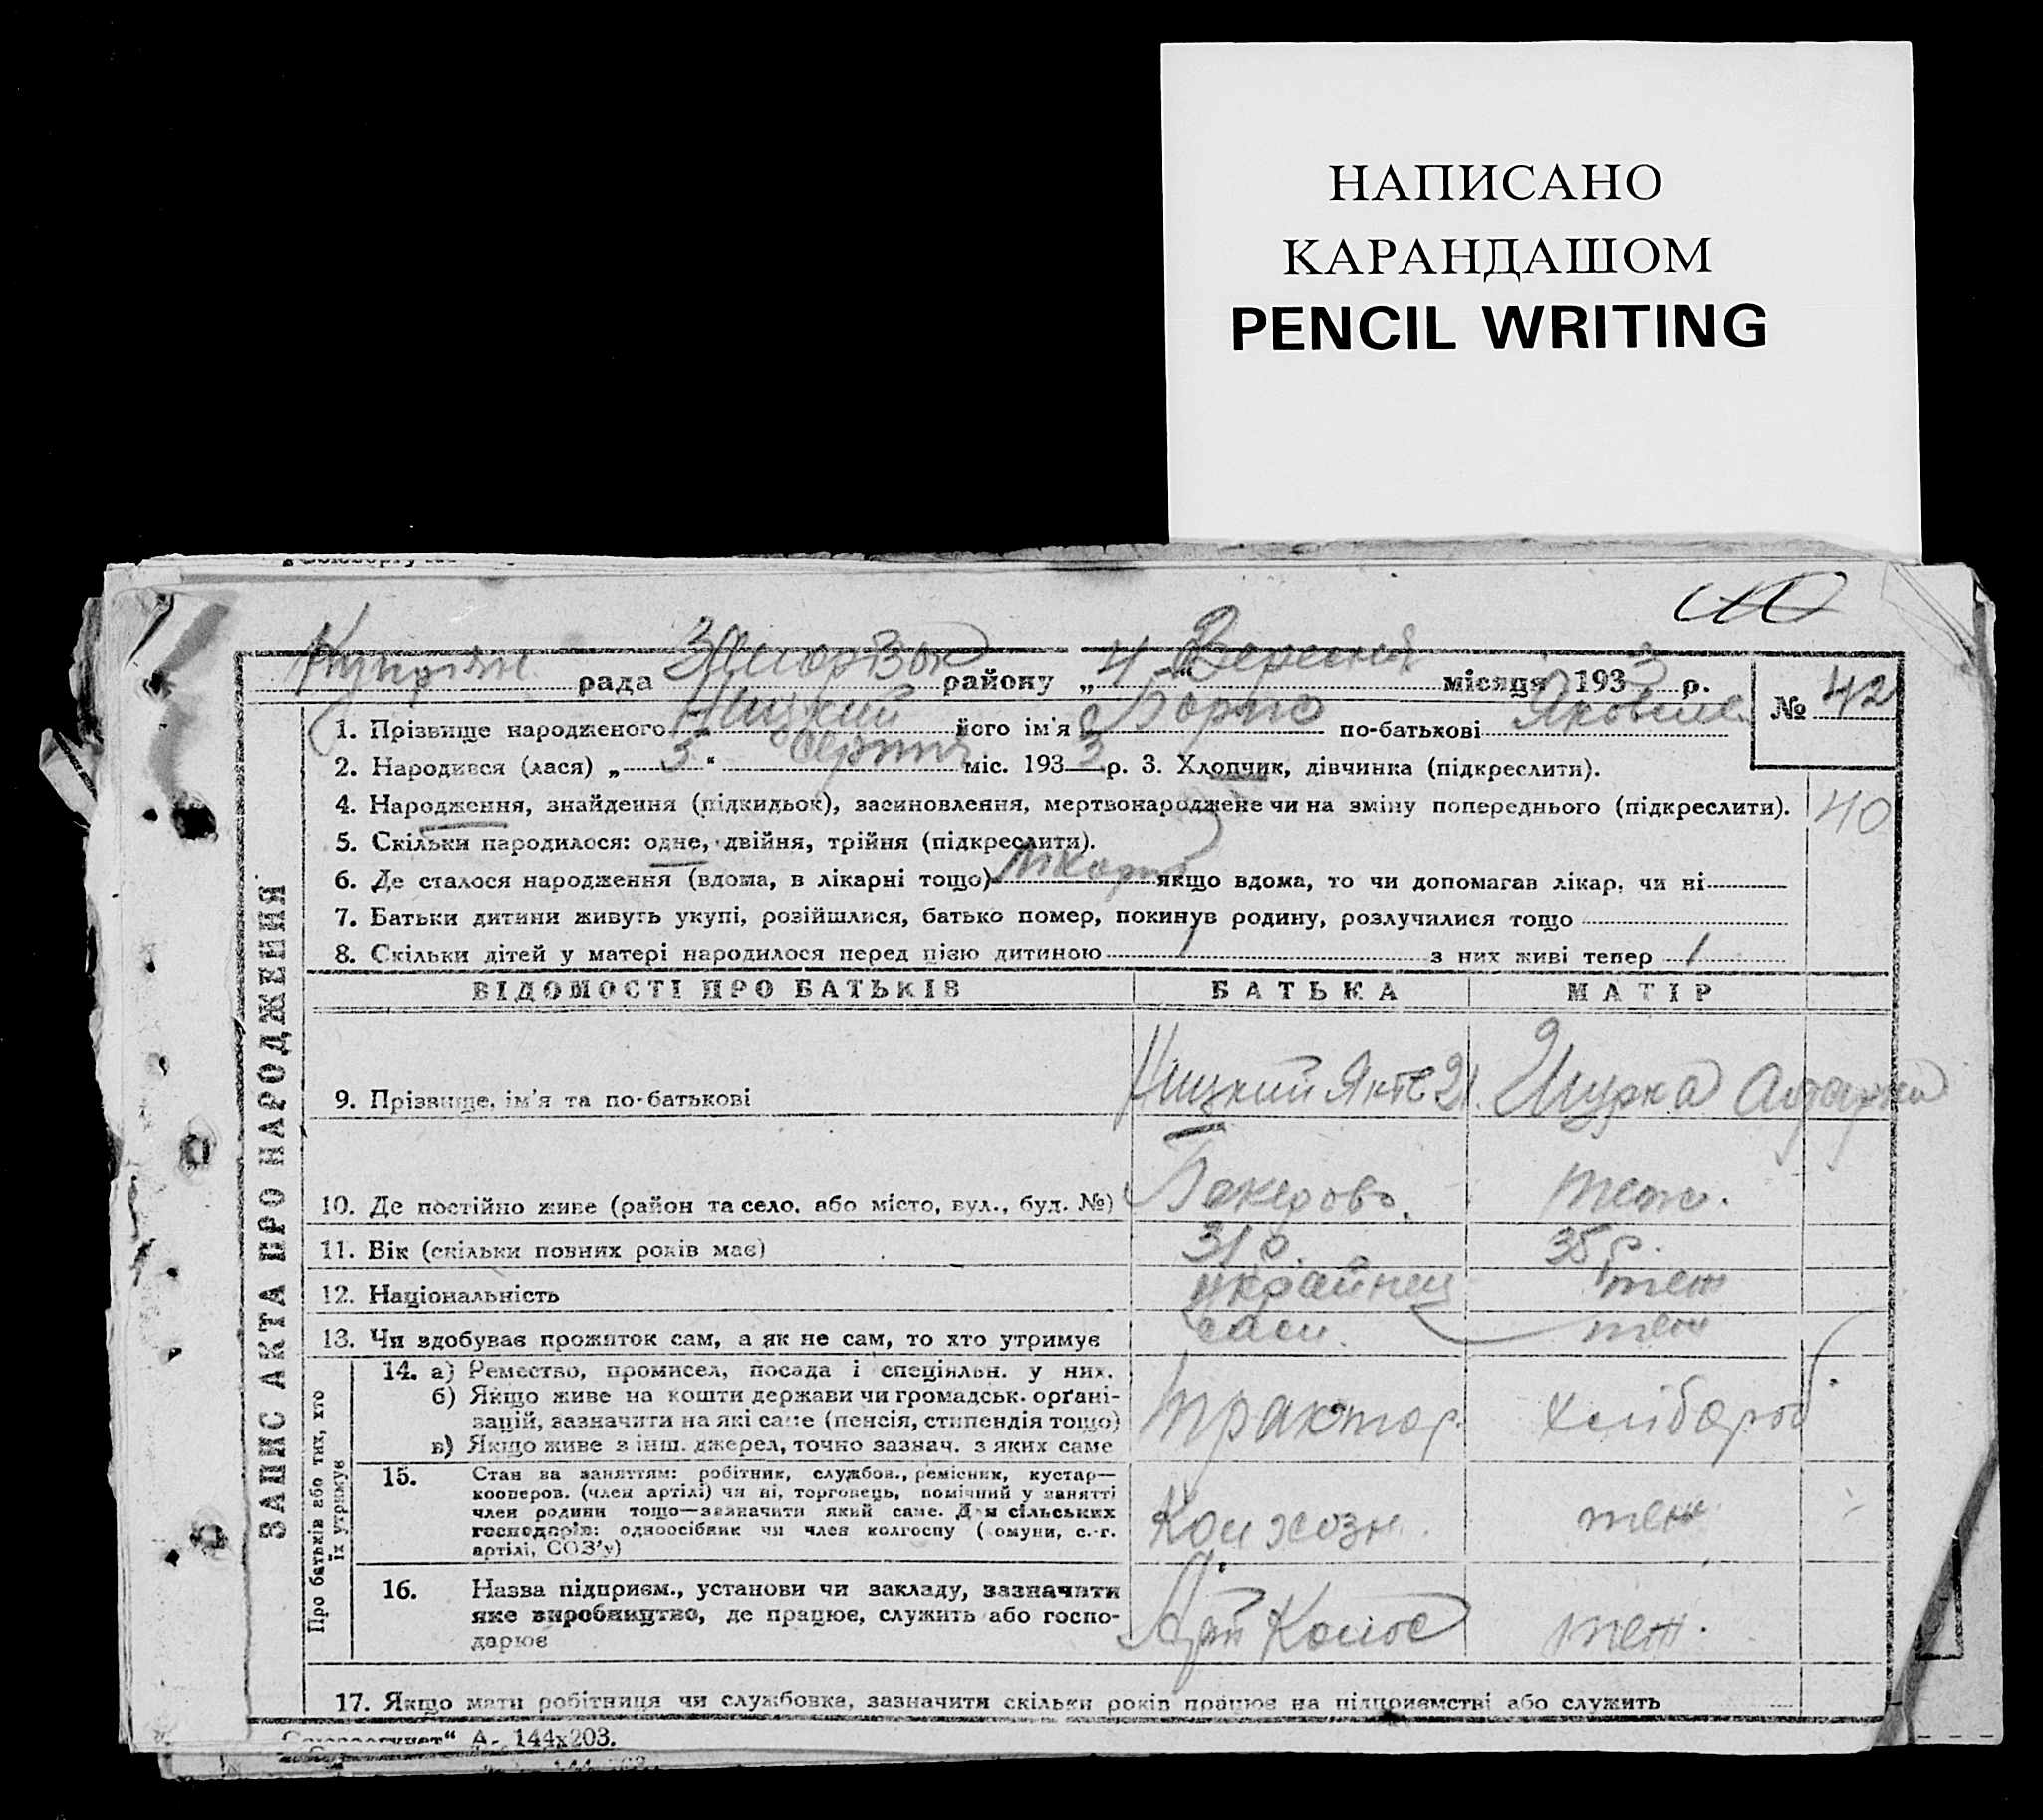 НАПИСАНО
КАРАНДАШОМ
PENCIL WRITING
рада району „4“ Вересня місяця 1933 р.
№ 42
1. Прізвище народженого Ницкий його ім'я Борис по-батькові Яковлев.
2. Народився (лася) „5“ серпня міс. 1933 р. 3. Хлопчик, дівчинка (підкреслити).
4. Народження, знайдення (підкидьок), засиновлення, мертвонароджене чи на зміну попереднього (підкреслити).
40
5. Скільки народилося: одне, двійня, трійня (підкреслити).
6. Де сталося народження (вдома, в лікарні тощо) якщо вдома, то чи допомагав лікар, чи ні
7. Батьки дитини живуть укупі, розійшлися, батько помер, покинув родину, розлучилися тощо
8. Скільки дітей у матері народилося перед цією дитиною 1 з них живі тепер 1
ЗАПИС АКТА ПРО НАРОДЖЕННЯ
ВІДОМОСТІ ПРО БАТЬКІВ БАТЬКА МАТІР
9. Прізвище, ім'я та по-батькові Ницкий
10. Де постійно живе (район та село, або місто, вул., буд. №) теж.
11. Вік (скільки повних років має) 31 р. 35 р.
12. Національність украйнец теж
13. Чи здобуває прожиток сам, а як не сам, то хто утримує сам. теж
Про батьків або тих, хто
їх утримує
14. а) Ремество, промисел, посада і спеціяльн. у них.
б) Якщо живе на кошти держави чи громадськ. орґані-
зацій, зазначити на які саме (пенсія, стипендія тощо)
в) Якщо живе з інш. джерел, точно зазнач. з яких саме
трактор. хлібороб
15. Стан за заняттям: робітник, службов., ремісник, кустар—
кооперов. (член артілі) чи ні, торговець, помічний у занятті
член родини тощо—зазначити який саме. Для сільських
господарів: одноосібник чи член колгоспу (комуни, с.-г.
артілі, СОЗ'у)
Колхозн. теж
16. Назва підприєм., установи чи закладу, зазначити
яке виробництво, де працює, служить або госпо-
дарює
Колос теж.
17. Якщо мати робітниця чи службовка, зазначити скільки років працює на підприємстві або служить
А- 144х203.